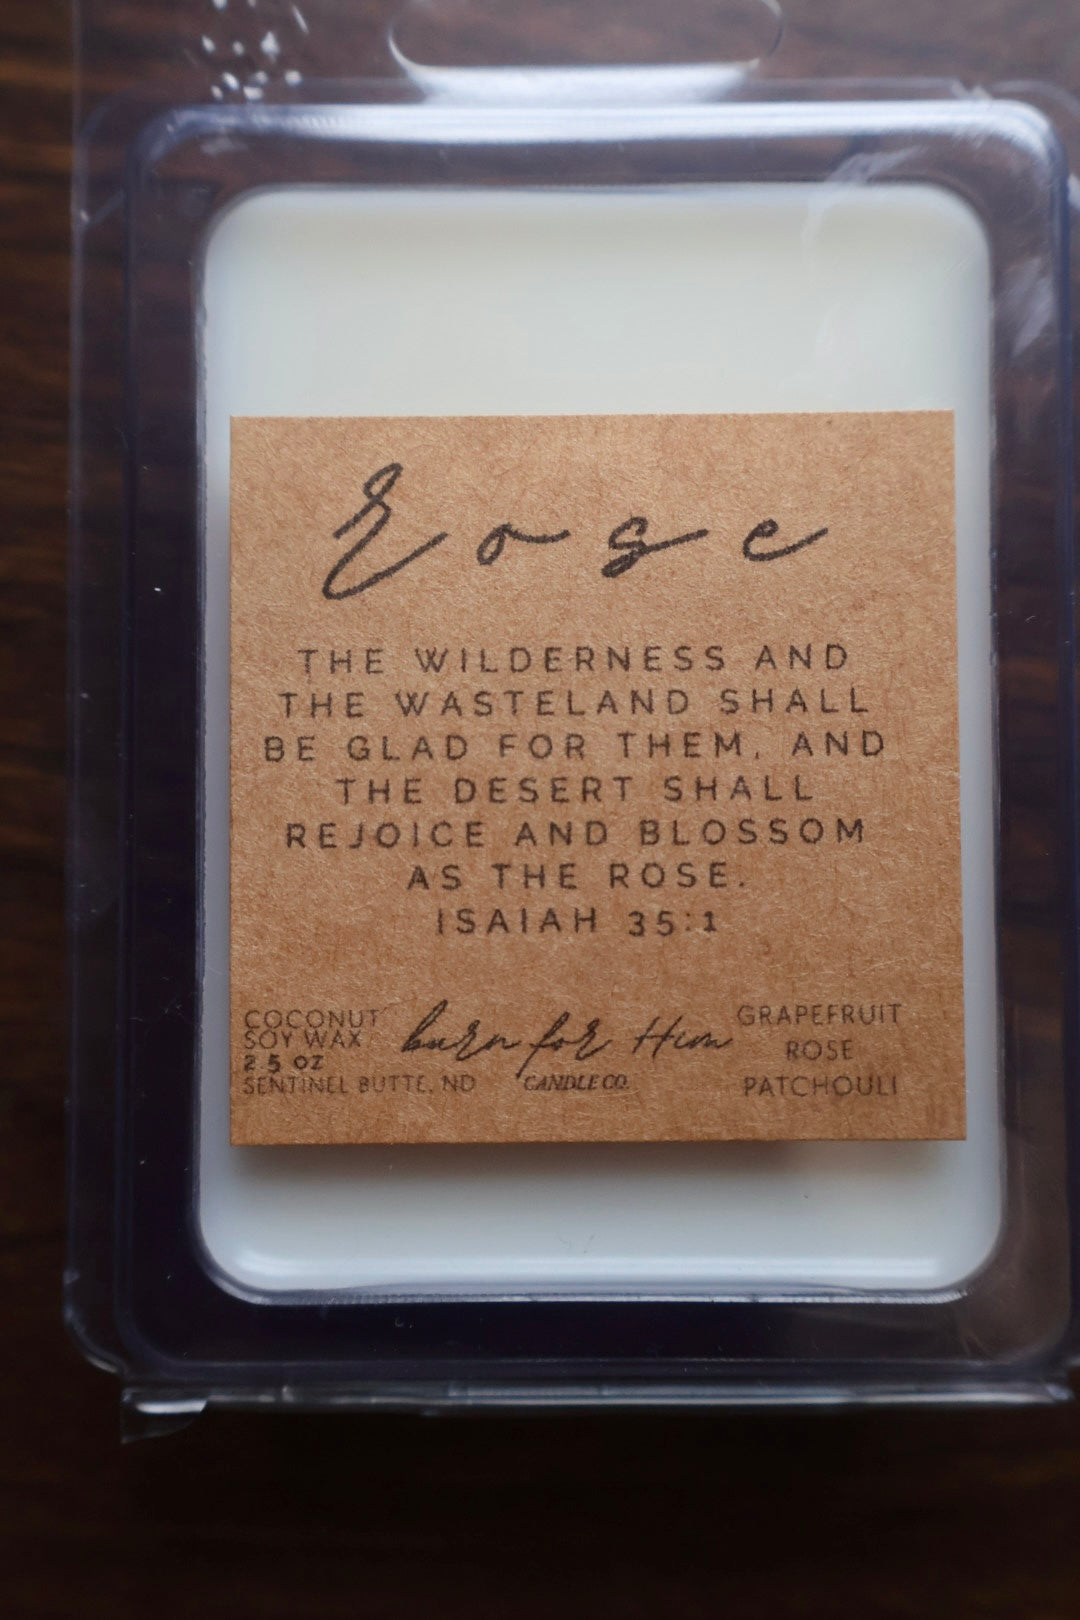 Rose
THE WILDERNESS AND
THE WASTELAND SHALL
BE GLAD FOR THEM, AND
THE DESERT SHALL
REJOICE AND BLOSSOM
AS THE ROSE.
ISAIAH 35:1
COCONUT
SOY WAX
2.5 OZ
SENTINEL BUTTE, ND
burn for Him
CANDLE CO.
GRAPEFRUIT
ROSE
PATCHOULI